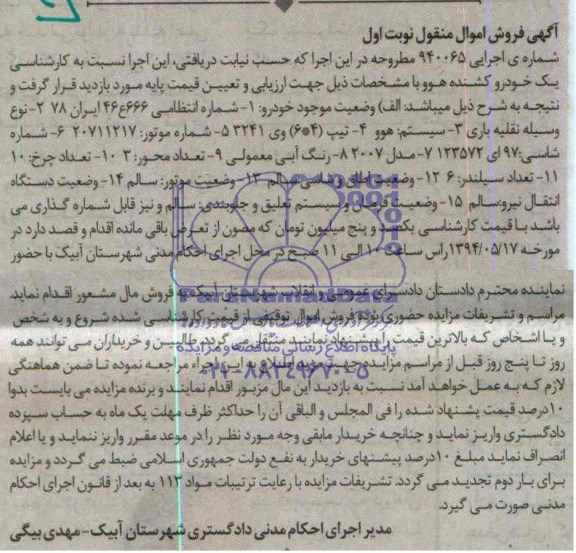 آگهی فروش اموال منقول نوبت اول
شماره ی اجرایی ۹۴۰۰۶۵ مطروحه در این اجرا که حسب نیابت دریافتی، این اجرا نسبت به کارشناسی
یک خودرو کشنده هوو با مشخصات ذیل جهت ارزیابی و تعیین قیمت پایه مورد بازدید قرار گرفت و
نتیجه به شرح ذیل میباشد: الف) وضعیت موجود خودرو: ۱- شماره انتظامی ۶۶۶ع۴۶ ایران ۷۸ ۲-نوع
وسیله نقلیه باری ۳- سیستم: هوو ۴- تیپ (۴*۶) وی ۳۲۴۱ ۵- شماره موتور: ۲۰۷۱۱۲۱۷ ۶- شماره
شاسی: ۹۷ ای ۱۲۳۵۷۲ ۷- مدل ۲۰۰۷ ۸- رنگ آبی معمولی ۹- تعداد محور: ۳ ۱۰- تعداد چرخ: ۱۰
۱۱- تعداد سیلندر: ۶ ۱۲- وضعیت اطاق و شاسی سالم ۱۳- وضعیت موتور: سالم ۱۴- وضعیت دستگاه
انتقال نیرو:سالم ۱۵- وضعیت فرمان و سیستم تعلیق و جلوبندی: سالم و نیز قابل شماره گذاری می
باشد با قیمت کارشناسی یکصد و پنج میلیون تومان که مصون از تعرض باقی مانده اقدام و قصد دارد در
مورخه ۱۳۹۴/۰۵/۱۷ راس ساعت ۱۰ الی ۱۱ صبح در محل اجرای احکام مدنی شهرستان آبیک با حضور
نماینده محترم دادستان دادسرای عمومی و انقلاب شهرستان آبیک به فروش مال مشعور اقدام نماید.
مراسم و تشریفات مزایده حضوری بوده فروش اموال توقیفی از قیمت کارشناسی شده شروع و به شخص
و یا اشخاص که بالاترین قیمت را پیشنهاد نمایند منتقل می گردد. طالبین و خریداران می توانند همه
روز تا پنج روز قبل از مراسم مزایده جهت این اجراء مراجعه نموده تا ضمن هماهنگی
لازم که به عمل خواهد آمد نسبت به بازدید این مال مزبور اقدام نمایند و برنده مزایده می بایست بدوا
۱۰درصد قیمت پشنهاد شده را فی المجلس و الباقی آن را حداکثر ظرف مهلت یک ماه به حساب سپرده
دادگستری واریز نماید و چنانچه خریدار مابقی وجه مورد نظر را در موعد مقرر واریز ننماید و یا اعلام
انصراف نماید مبلغ ۱۰درصد پیشنهای خریدار به نفع دولت جمهوری اسلامی ضبط می گردد و مزایده
برای بار دوم تجدید می گردد. تشریفات مزایده با رعایت ترتیبات مواد ۱۱۳ به بعد از قانون اجرای احکام
مدنی صورت می گیرد.
مدیر اجرای احکام مدنی دادگستری شهرستان آبیک- مهدی بیگی
ParsNamadData
پایگاه اطلاع رسانی مناقصه و مزایده
۰۲۱-۸۸۳۴۹۶۷۰-۵